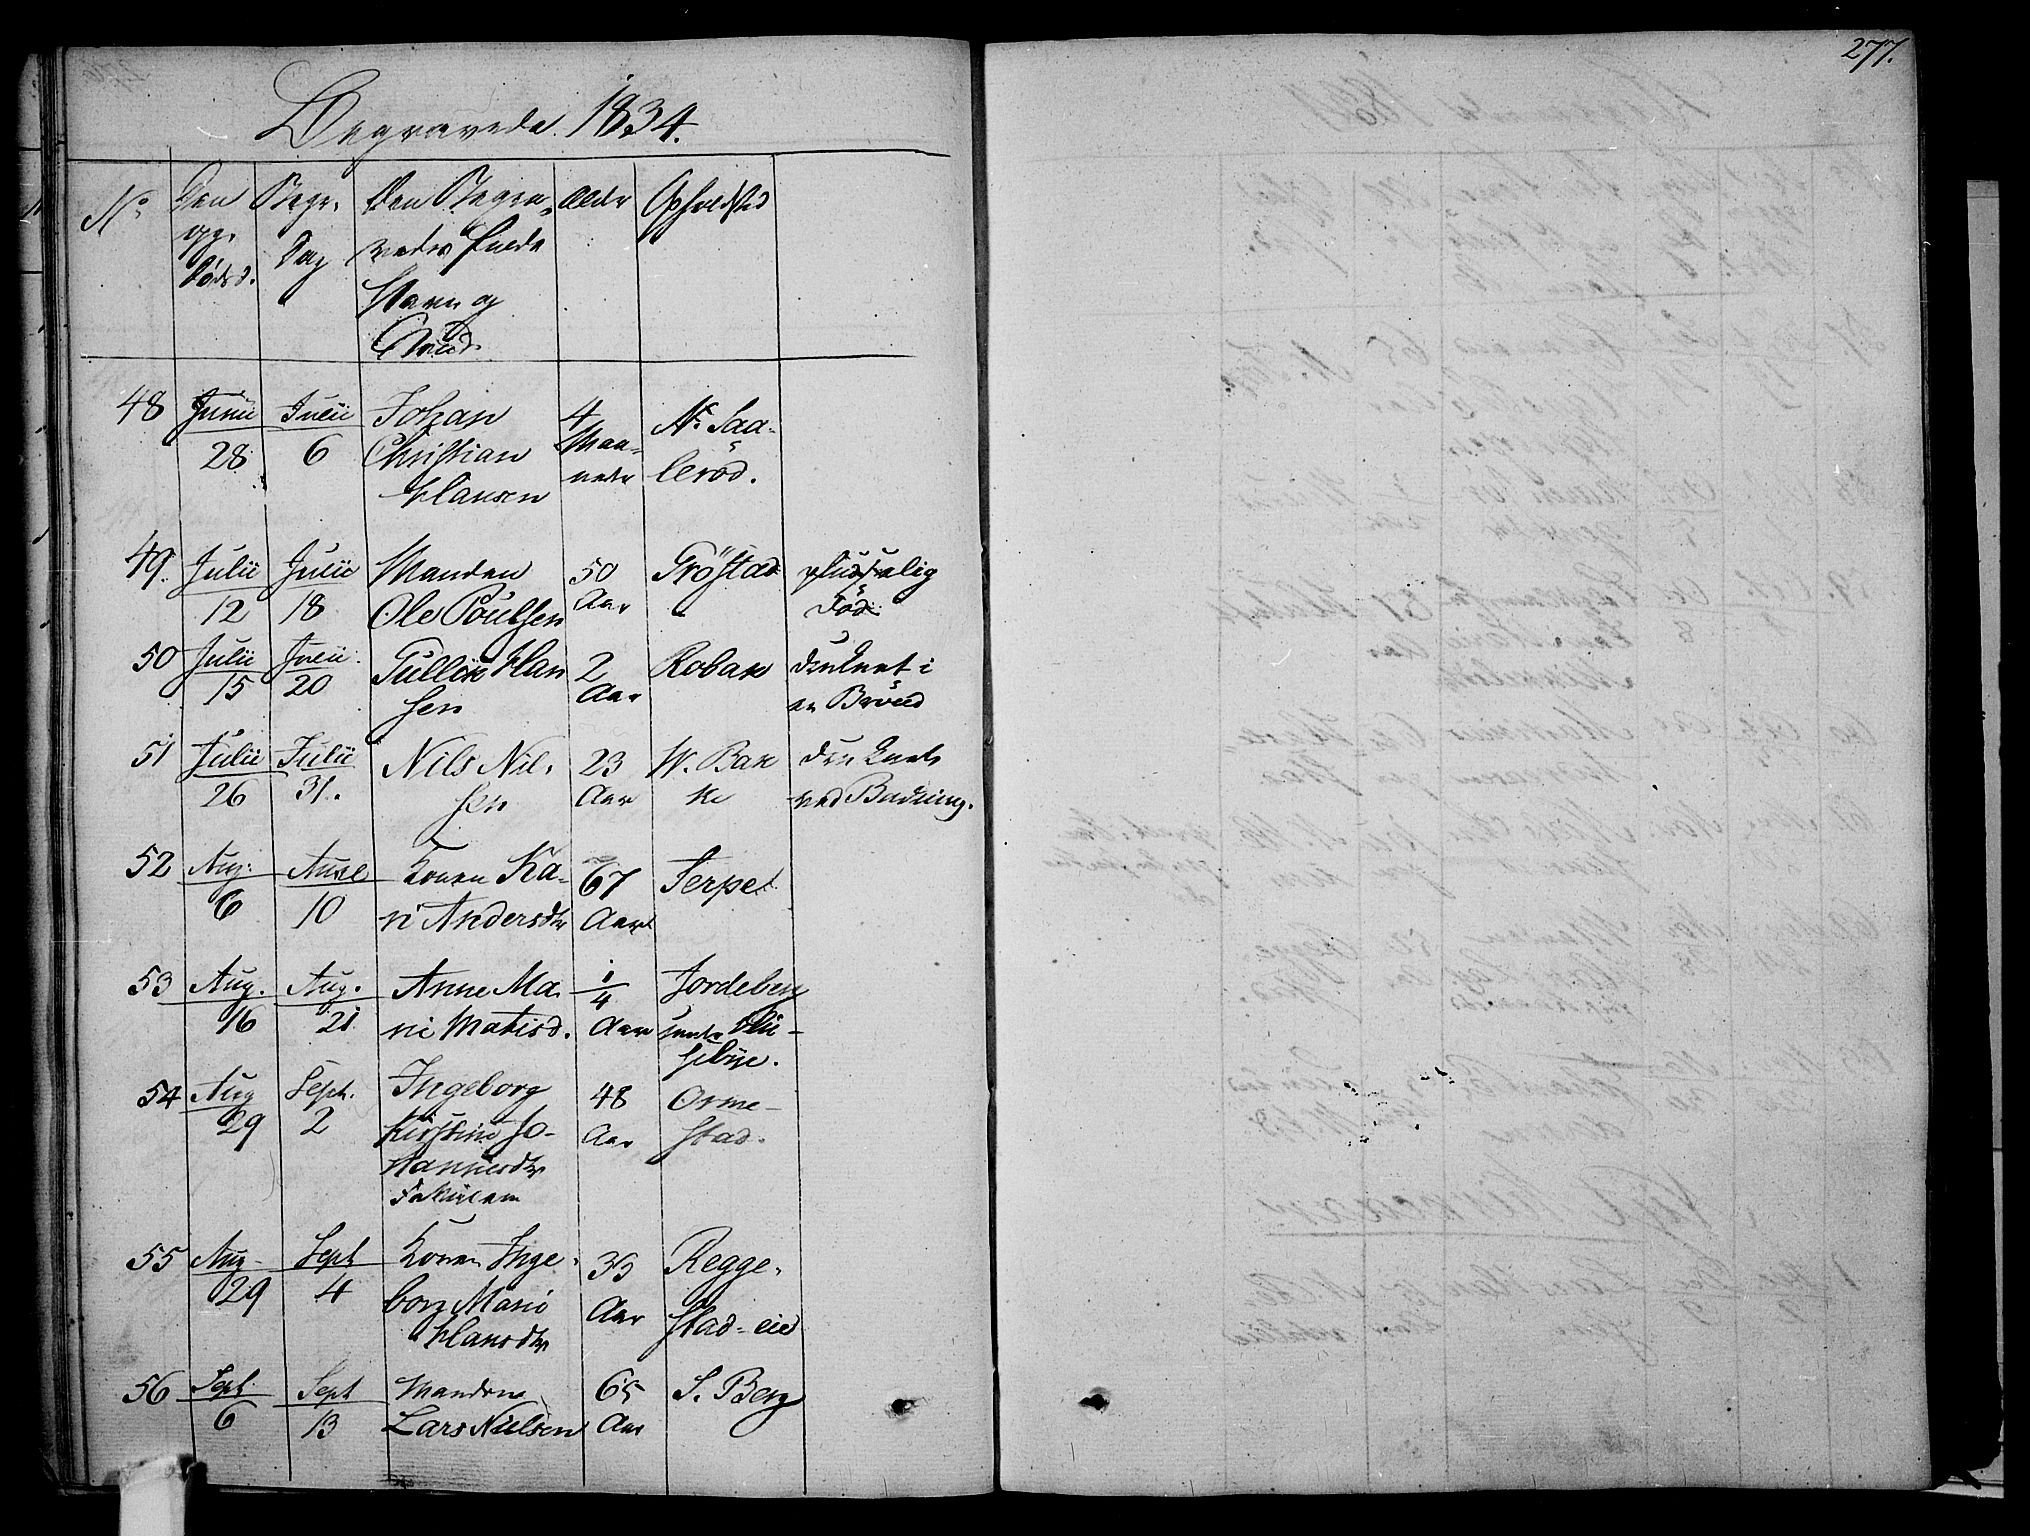 277.
Begravede 1834.
No
Den og. Dödsd.
Begr. Dag
Den Begravedes fulde Navn og Stand
Alder
Opholdsted
48 Junii 28 Julii 6 Johan Christian Hansen 4 Maaneder N. Saalerød.
49. Julii 12 Julii 18 Manden Ole Poulsen 50 Aar Gröstad pludselig Död
50 Julii 15 Julii 20 Gullik Hansen 2 Aar Robak druknet i en Brönd
51 Julii 26 Julii 31. Nils Nilsen 23 Aar W. Bakke druknet ved Badning.
52 Aug: 6 10 Konen Kari Andersdtr 67 Aar Serpe
53 Aug. 16 Aug. 21 Anne Marie Matisd. 1/4 Aar Jordeberg under
54 Aug 29 Sept. 2 Ingeborg Kirstine Johannesdtr 48 Aar Ormestad.
55 Aug 29 Sept 4 Konen Ingeborg Marie Hansdtr Aar Reggestad-eie
56 Sept 6 Sept 13 Manden Lars Nielsen 65 Aar S. Berg